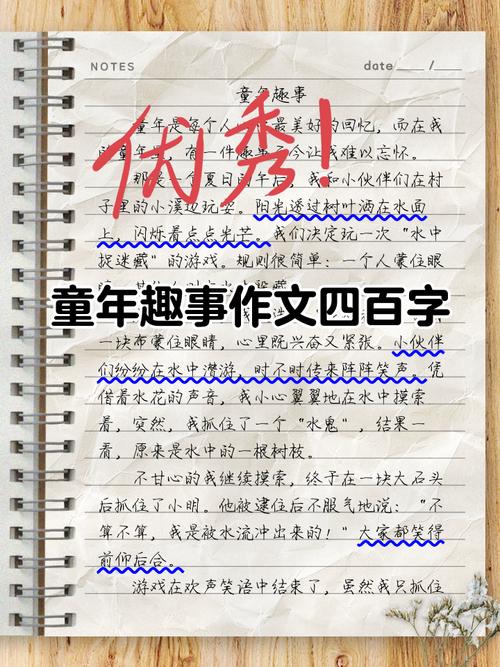 NOTES
date ___ / ___
童年趣事
童年是每个人最美好的回忆，而在我
童年里，有一件趣事至今让我难以忘怀。
那是一个夏日的午后，我和小伙伴们在村
子里的小溪边玩耍。阳光透过树叶洒在水面
上，闪烁着点点光芒。我们决定玩一次“水中
捉迷藏”的游戏。规则很简单：一个人蒙住眼
优秀！
童年趣事作文四百字
一块布蒙住眼睛，心里既兴奋又紧张。小伙伴
们纷纷在水中潜游，时不时传来阵阵笑声。凭
借着水花的声音，我小心翼翼地在水中摸索
着，突然，我抓住了一个“水鬼”，结果一
看，原来是水中的一根树枝。
不甘心的我继续摸索，终于在一块大石头
后抓住了小明。他被逮住后不服气地说：“不
算不算，我是被水流冲出来的！”大家都笑得
前仰后合。
游戏在欢声笑语中结束了，虽然我只抓住